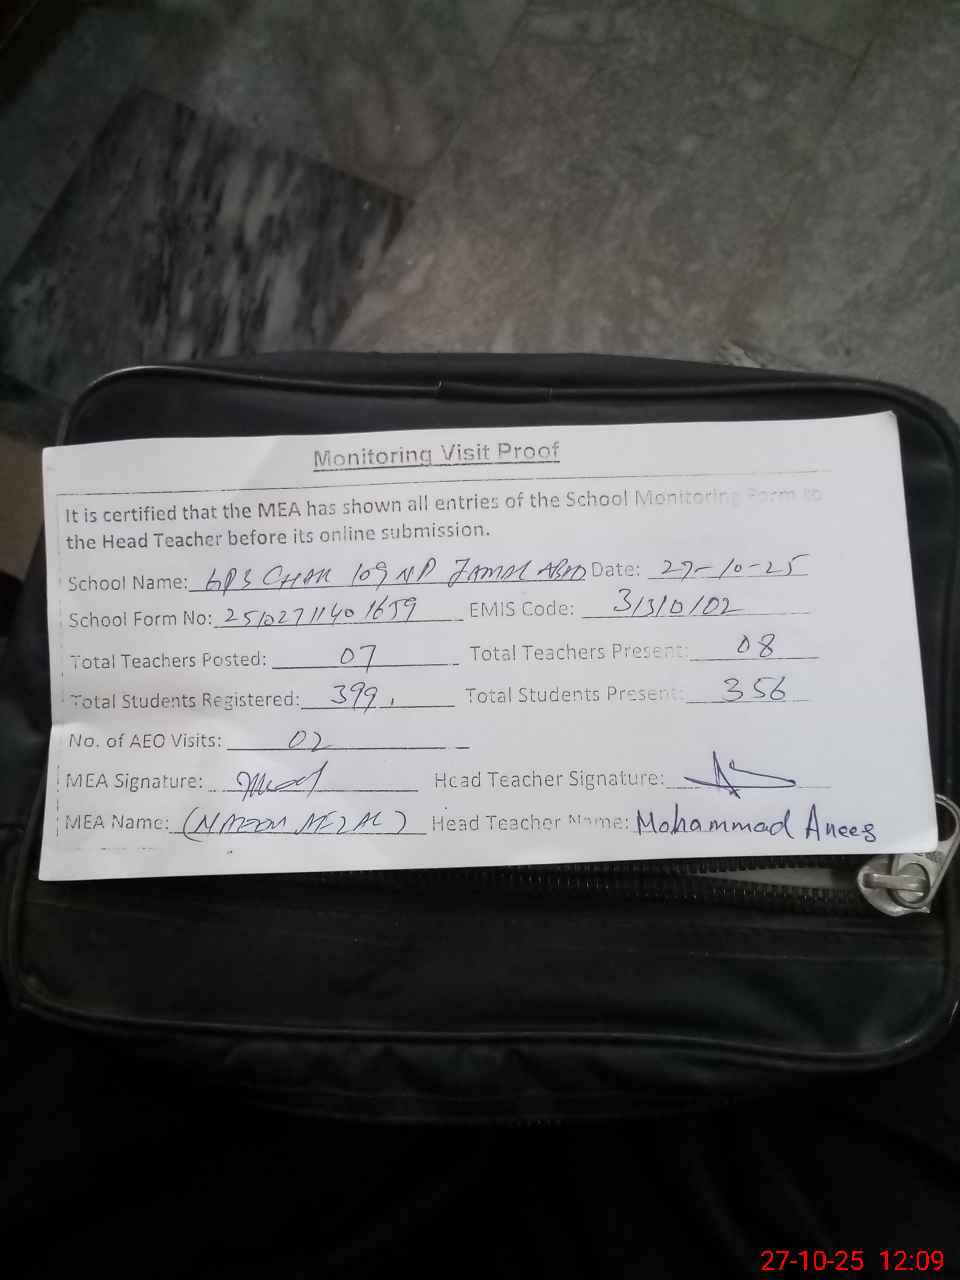 Monitoring Visit Proof
It is certified that the MEA has shown all entries of the School Monitoring Form to
the Head Teacher before its online submission.
School Name: GPS CHAK 109 NP JAMAL ABAD Date: 27-10-25
School Form No: 25102711401659 EMIS Code: 31310102
Total Teachers Posted: 07 Total Teachers Present: 08
Total Students Registered: 399 Total Students Present: 356
No. of AEO Visits: 02
MEA Signature: Head Teacher Signature:
MEA Name: ( AFZAL) Head Teacher Name: Mohammad Anees
27-10-25 12:09